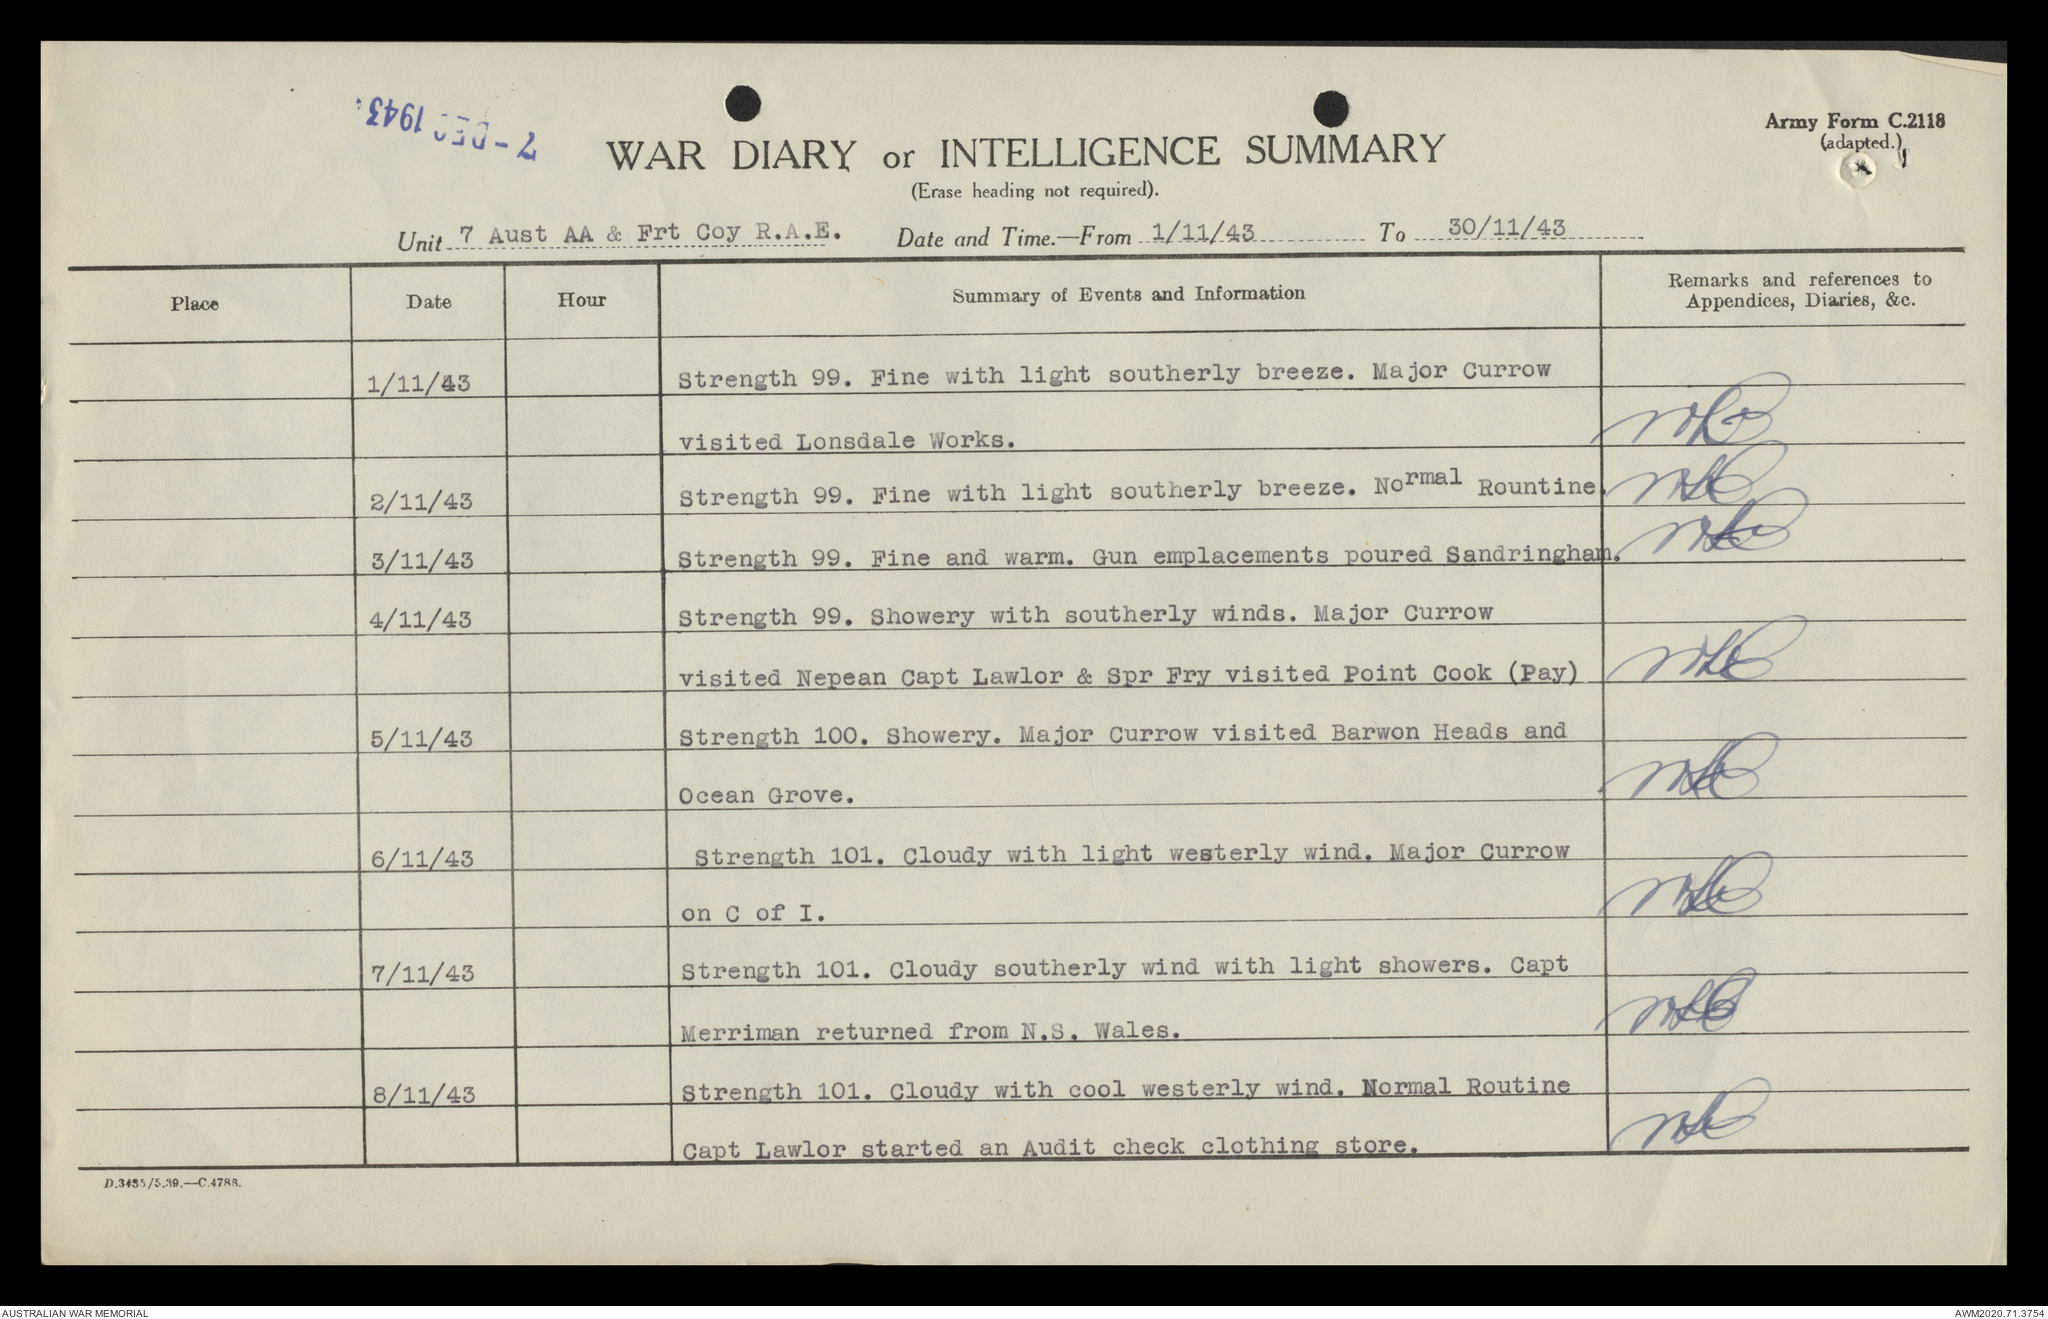 7 - DEC 1943
Army Form C.2118
(adapted.)
WAR DIARY or INTELLIGENCE SUMMARY
(Erase heading not required).
Unit 7 Aust AA & Frt Coy R.A.E. Date and Time.—From 1/11/43 To 30/11/43
Place Date Hour Summary of Events and Information Remarks and references to
Appendices, Diaries, &c.
1/11/43 Strength 99. Fine with light southerly breeze. Major Currow
visited Lonsdale Works.
2/11/43 Strength 99. Fine with light southerly breeze. Normal Rountine.
3/11/43 Strength 99. Fine and warm. Gun emplacements poured Sandringham.
4/11/43 Strength 99. Showery with southerly winds. Major Currow
visited Nepean Capt Lawlor & Spr Fry visited Point Cook (Pay)
5/11/43 Strength 100. Showery. Major Currow visited Barwon Heads and
Ocean Grove.
6/11/43 Strength 101. Cloudy with light westerly wind. Major Currow
on C of I.
7/11/43 Strength 101. Cloudy southerly wind with light showers. Capt
Merriman returned from N.S. Wales.
8/11/43 Strength 101. Cloudy with cool westerly wind. Normal Routine
Capt Lawlor started an Audit check clothing store.
D.3435/5.39.—C.4788.
AUSTRALIAN WAR MEMORIAL AWM2020.71.3754